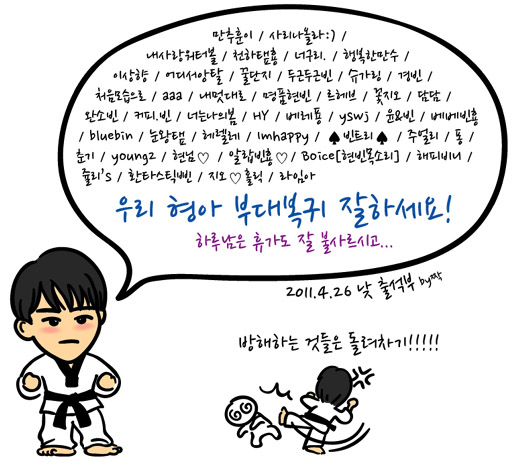 만추훈이 / 사리나불라:) /
내사랑워터볼 / 천하탬흉 / 너구리. / 행복한만수 /
이상향 / 어디서앙탈 / 꿀단지 / 두근두근빈 / 슈가링 / 경빈 /
처음모습으로 / aaa / 내멋대로 / 명품현빈 / 르헤브 / 꽃지오 / 담담 /
완소빈 / 커피.빈 / 너는나의봄 / HY / 베레풍 / yswj / 윤&빈 / 베베빈흉
/ bluebin / 눈왕탬 / 헤렐레 / Imhappy / ♠빈트리♠ / 주얼리 / 퐁 /
춘기 / young2 / 현님♡ / 알랍빈흉♡ / Boice[현빈목소리] / 해피비니 /
쥴리's / 환타스틱삔 / 지오♡홀릭 / 라임아
우리 형아 부대복귀 잘하세요!
하루남은 휴가도 잘 불사르시고...
2011.4.26 낮 출석부 by짝
방해하는 것들은 돌려차기!!!!!